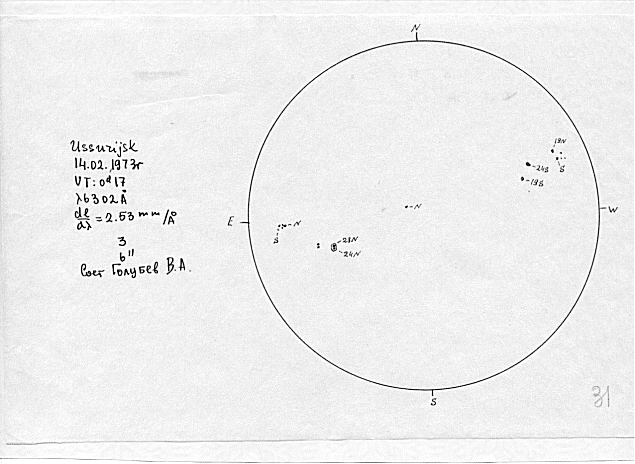 Ussurijsk
14.02.1973г
UT: 0ᵈ17
λ6302Å
dl/dλ = 2.53 mm/Å
3
6"
Сост Голубев В.А.
N
19N
24S
S
19S
N
W
E
N
S
23N
24N
S
31